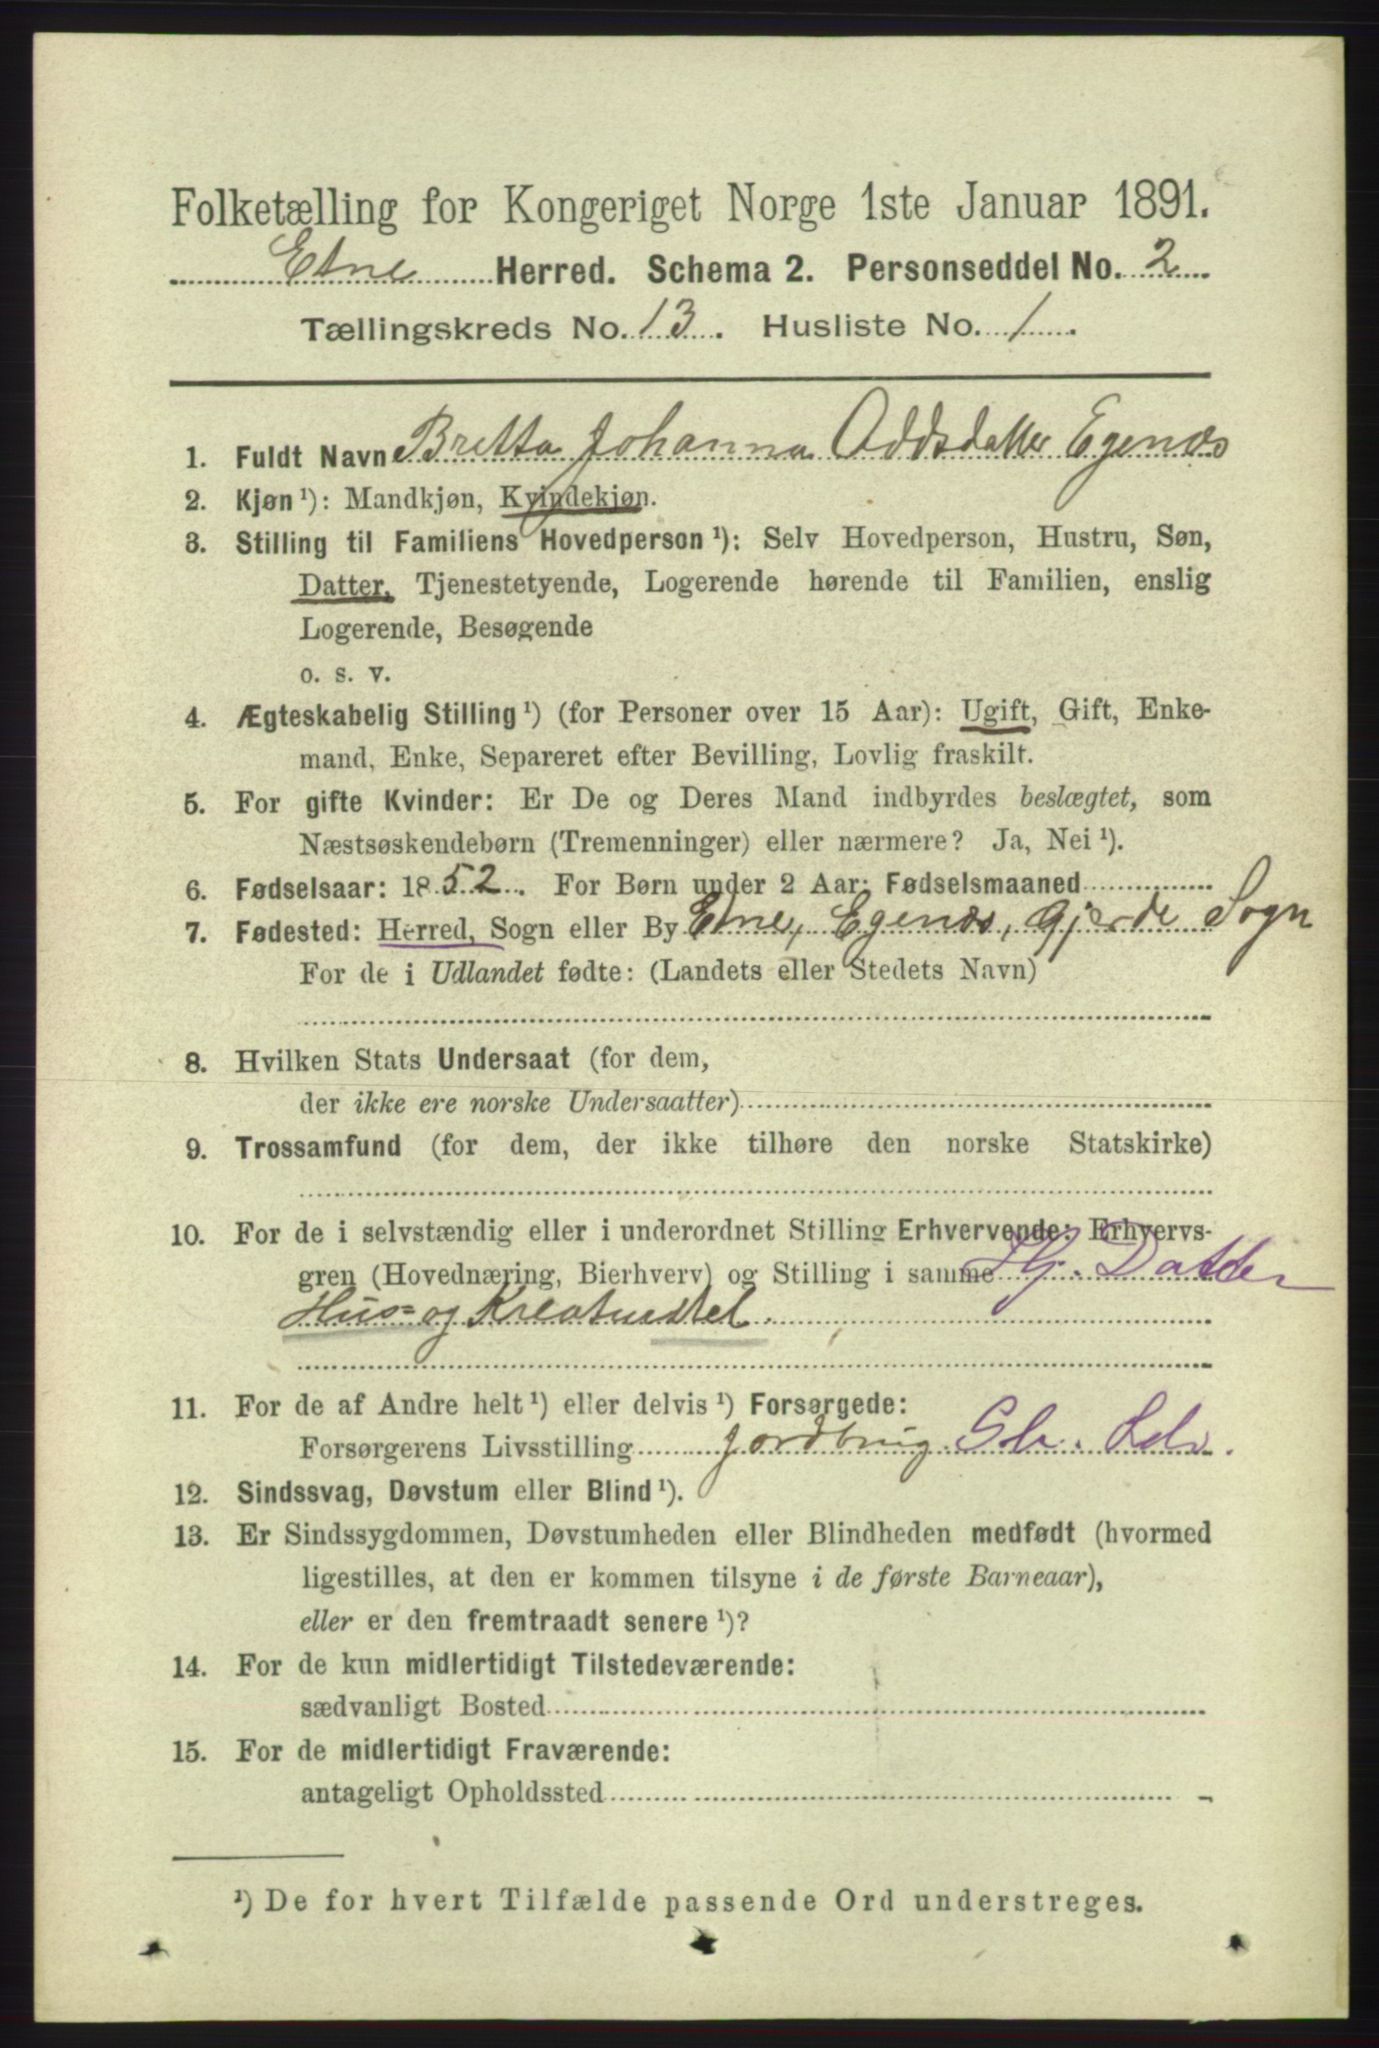 Folketælling for Kongeriget Norge 1ste Januar 1891.
Etne Herred. Schema 2. Personseddel No. 2
Tællingskreds No. 13. Husliste No. 1
1. Fuldt Navn Britta Johanna Oddsdatter Egenæs
2. Kjøn ¹): Mandkjøn, Kvindekjøn.
3. Stilling til Familiens Hovedperson ¹): Selv Hovedperson, Hustru, Søn,
Datter, Tjenestetyende, Logerende hørende til Familien, enslig
Logerende, Besøgende
o. s. v.
4. Ægteskabelig Stilling ¹) (for Personer over 15 Aar): Ugift, Gift, Enke-
mand, Enke, Separeret efter Bevilling, Lovlig fraskilt.
5. For gifte Kvinder: Er De og Deres Mand indbyrdes beslægtet, som
Næstsøskendebørn (Tremenninger) eller nærmere? Ja, Nei ¹).
6. Fødselsaar: 1852. For Børn under 2 Aar: Fødselsmaaned
7. Fødested: Herred, Sogn eller By Etne, Egenæs, Gjerde Sogn
For de i Udlandet fødte: (Landets eller Stedets Navn)
8. Hvilken Stats Undersaat (for dem,
der ikke ere norske Undersaatter)
9. Trossamfund (for dem, der ikke tilhøre den norske Statskirke)
10. For de i selvstændig eller i underordnet Stilling Erhvervende: Erhvervs-
gren (Hovednæring, Bierhverv) og Stilling i samme Hj. Datter
Hus- og Kreaturstel.
11. For de af Andre helt ¹) eller delvis ¹) Forsørgede:
Forsørgerens Livsstilling Jordbrug. Selv.
12. Sindssvag, Døvstum eller Blind ¹).
13. Er Sindssygdommen, Døvstumheden eller Blindheden medfødt (hvormed
ligestilles, at den er kommen tilsyne i de første Barneaar),
eller er den fremtraadt senere ¹)?
14. For de kun midlertidigt Tilstedeværende:
sædvanligt Bosted
15. For de midlertidigt Fraværende:
antageligt Opholdssted
¹) De for hvert Tilfælde passende Ord understreges.